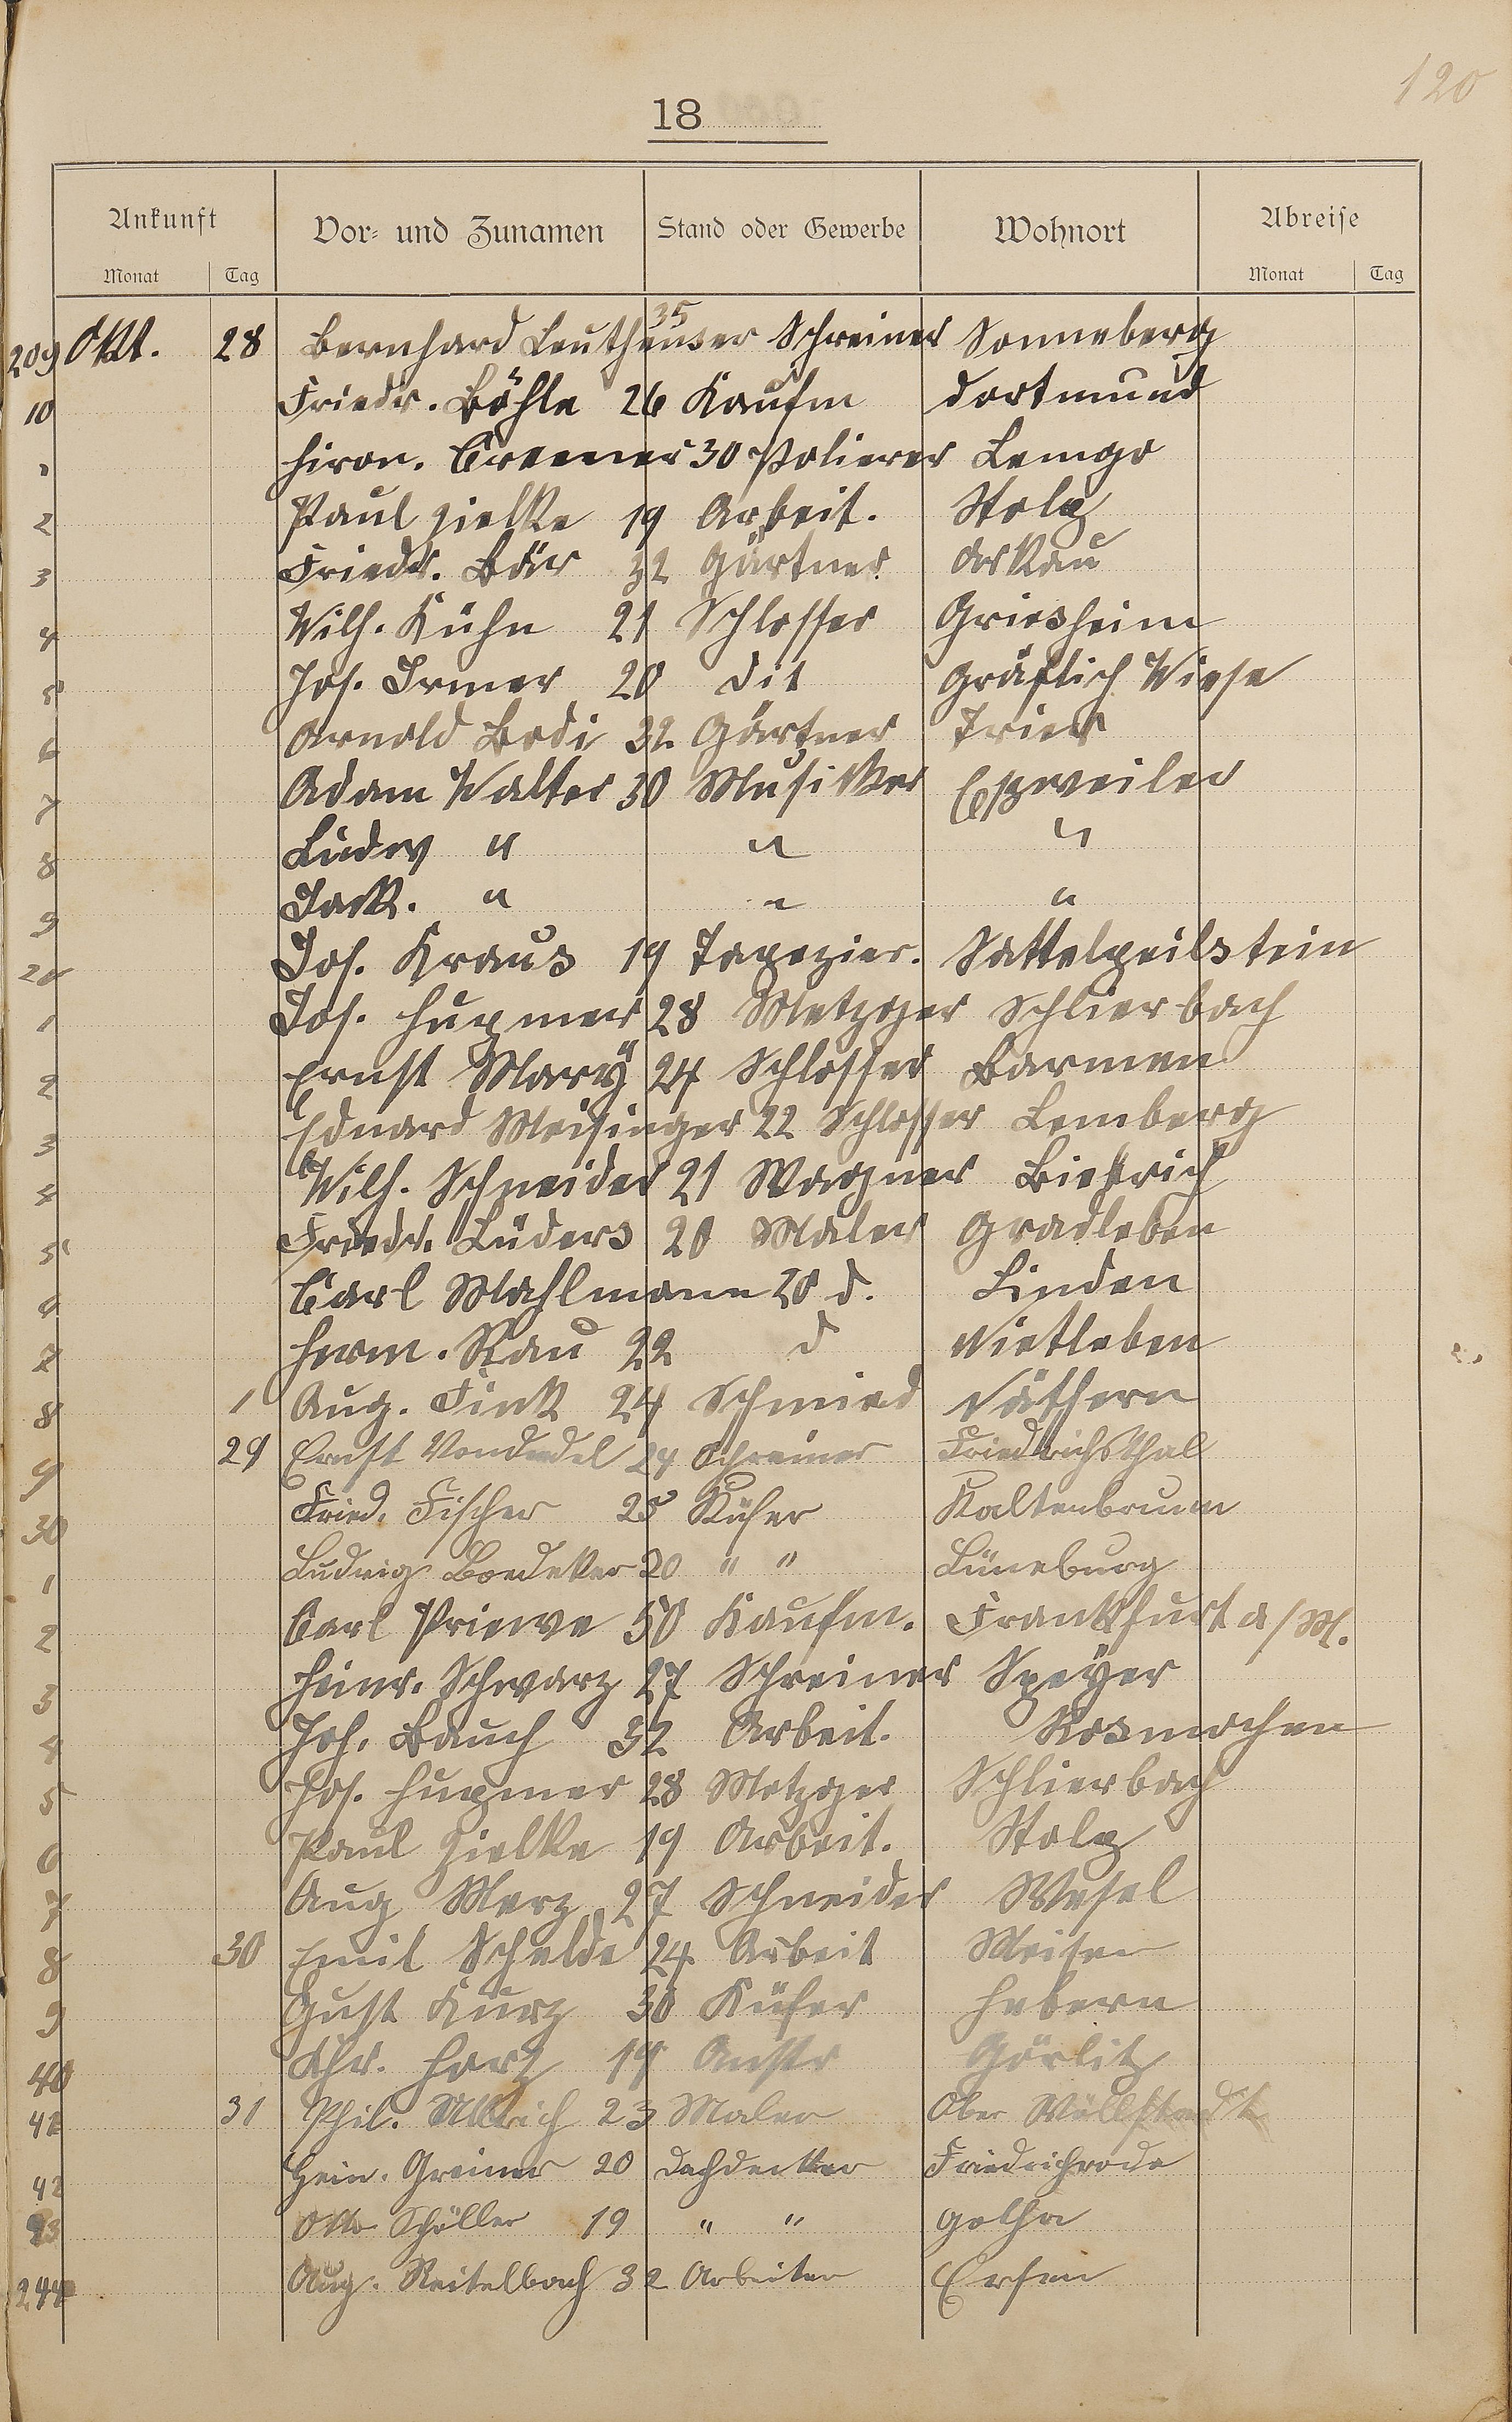 120
18
Ankunft Vor- und Zunamen Stand oder Gewerbe Wohnort Abreise
Monat Tag Monat Tag
209 Okt. 28 Bernhard Leuthäuser 35 Schreiner Sonneberg
10 Friedr. Böhle 26 Kaufm Dortmund
1 Hiron. Cremer 30 Polierer Lemgo
2 Paul Zielke 19 Arbeit. Stolp
3 Friedr. Bär 32 Gärtner
4 Wilh. Kühn 21 Schlosser Griesheim
5 Jos. Irmer 20 dit Gräflich Wiese
6 Arnold Bodi 32 Gärtner Trier
7 Adam Walter 30 Musiker Eßweiler
8 Ludw " " "
9 Jack. " " "
20 Jos. Kraus 19 Tapezier. Sattelpeilstein
1 Jos. Hupmer 28 Metzger Schlierbach
2 Ernst Marÿ 24 Schlosser Barmen
3 Eduard Meisinger 22 Schlosser Lemberg
4 Wilh. Schneider 21 Wagner Biebrich
5 Friedr. Lüders 20 Maler Gradleben
6 Carl Mahlmann 20 d. Linden
7 Herm. Rau 22 d Nietleben
8 1 Aug. Fink 24 Schmied Näthern
9 29 Ernst 24 Schreiner Friedrichsthal
30 Fried. Fischer 25 Küfer Kaltenbrunn
1 Ludwig Boedeker 20 " " Lüneburg
2 Carl Priewe 50 Kaufm. Frankfurt a/M.
3 Heinr. Schwarz 27 Schreiner Speÿer
4 Joh. Bauch 32 Arbeit. Rosmochen
5 Jos. Hupmer 28 Metzger Schlierbach
6 Paul Zielke 19 Arbeit. Stolp
7 Aug Merz 27 Schneider Wesel
8 30 Emil Schelde 24 Arbeit Meisen
9 Gust Kurz 30 Küfer Habern
40 Chr. Harz 19 Anstr Görlitz
41 31 Phil. Ullrich 23 Maler Ober Wöllstadt
42 Hein. Greiner 20 Dachdecker Friedrichroda
43 Otto Schöller 19 " " Gotha
244 Aug. Reitelbach 32 Arbeiter Ersen